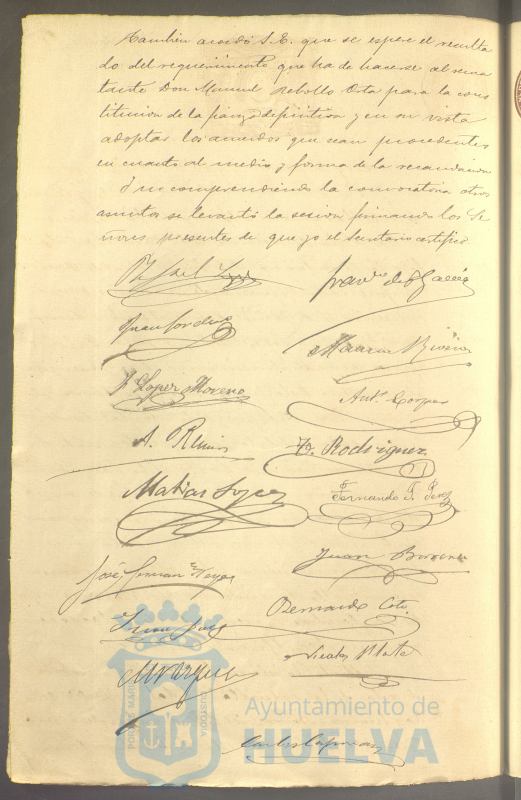 También acordó S. E. que se espere el resulta
do del requerimiento que ha de hacerse al rema
tante Don Manuel Rebollo Orta para la cons
titucion de la fianza definitiva y en su vista
adoptar los acuerdos que sean procedentes
en cuanto al medio y forma de la recaudacion
Y no comprendiendo la convocatoria otros
asuntos se levantó la sesion firmando los Se
ñores presentes de que yo el Secretario certifico
de García
Juan
A. Lopez Moreno
Antº Corpas
A.
F. Rodriguez
Matias Lopez
Fernando Perez
José
Juan
Bernardo Coto
Nicolas
Carlos
PORTUS MARIS
CUSTODIA
Ayuntamiento de
HUELVA